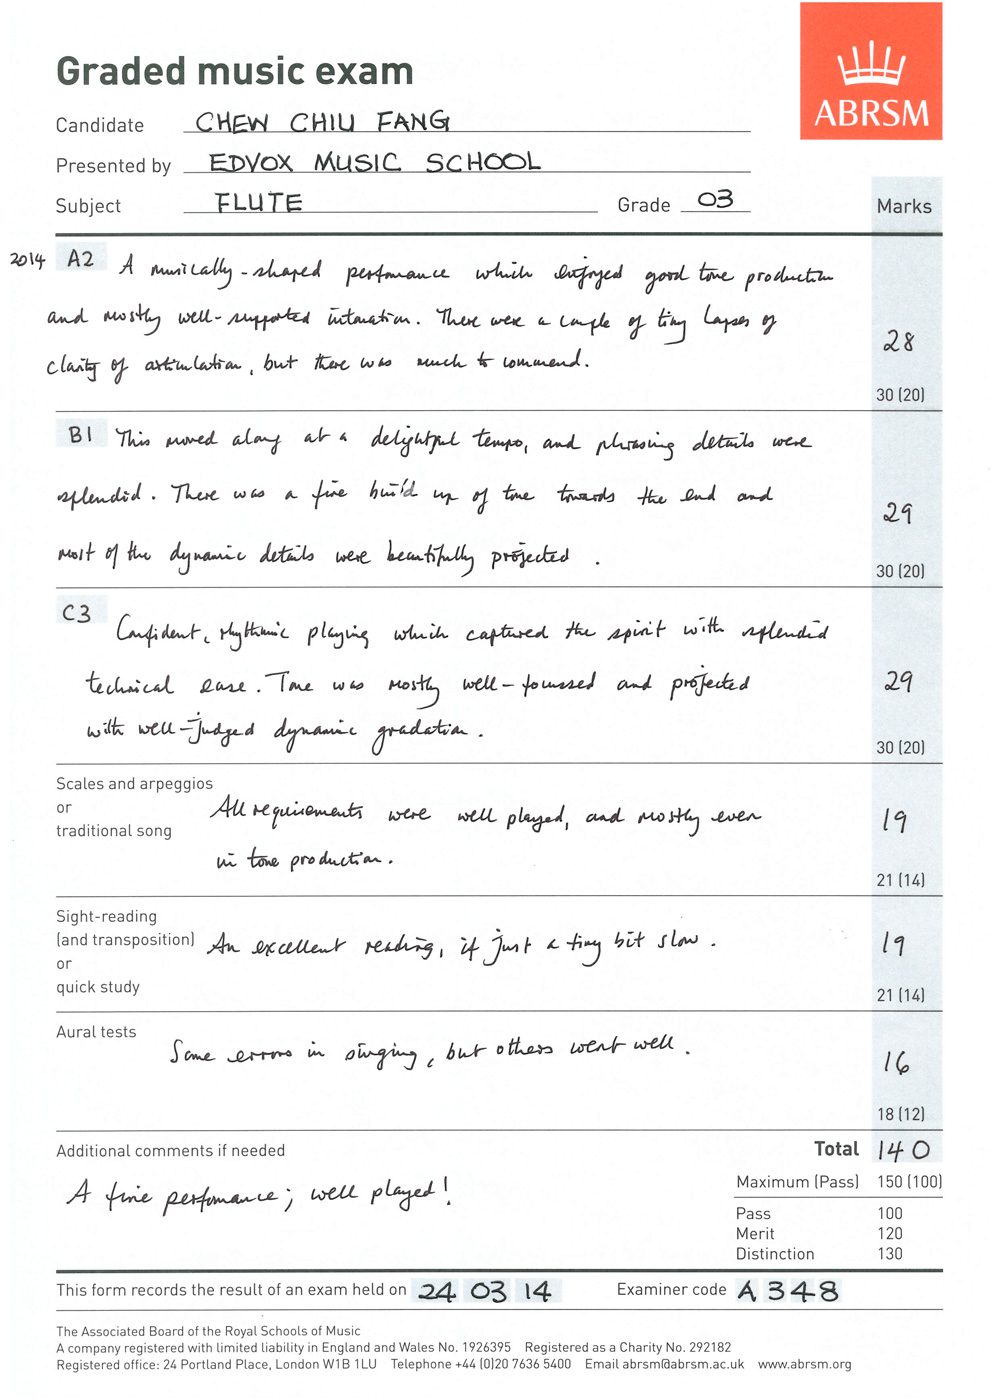 Graded music exam
ABRSM
Candidate CHEW CHIU FANG
Presented by EDVOX MUSIC SCHOOL
Subject FLUTE Grade 03 Marks
2014 A2 A musically-shaped performance which enjoyed good tone production
and mostly well-supported intonation. There were a couple of tiny lapses of
clarity of articulation, but there was much to commend.
28
30 (20)
B1 This moved along at a delightful tempo, and phrasing details were
splendid. There was a fine build up of tone towards the end and
most of the dynamic details were beautifully projected.
29
30 (20)
C3 Confident, rhythmic playing which captured the spirit with splendid
technical ease. Tone was mostly well-focussed and projected
with well-judged dynamic gradation.
29
30 (20)
Scales and arpeggios
or
traditional song
All requirements were well played, and mostly even
in tone production.
19
21 (14)
Sight-reading
(and transposition)
or
quick study
An excellent reading, if just a tiny bit slow.
19
21 (14)
Aural tests
Some errors in singing, but others went well.
16
18 (12)
Additional comments if needed
A fine performance; well played!
Total 140
Maximum (Pass) 150 (100)
Pass 100
Merit 120
Distinction 130
This form records the result of an exam held on 24 03 14 Examiner code A348
The Associated Board of the Royal Schools of Music
A company registered with limited liability in England and Wales No. 1926395 Registered as a Charity No. 292182
Registered office: 24 Portland Place, London W1B 1LU Telephone +44 (0)20 7636 5400 Email abrsm@abrsm.ac.uk www.abrsm.org